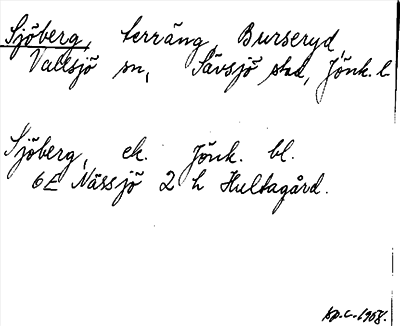 Sjöberg, terräng, Burseryd,
Vallsjö sn, Sävsjö stad, Jönk. l
Sjöberg, ek. Jönk. bl.
6E Nässjö 2 h Hultagård.
1968.